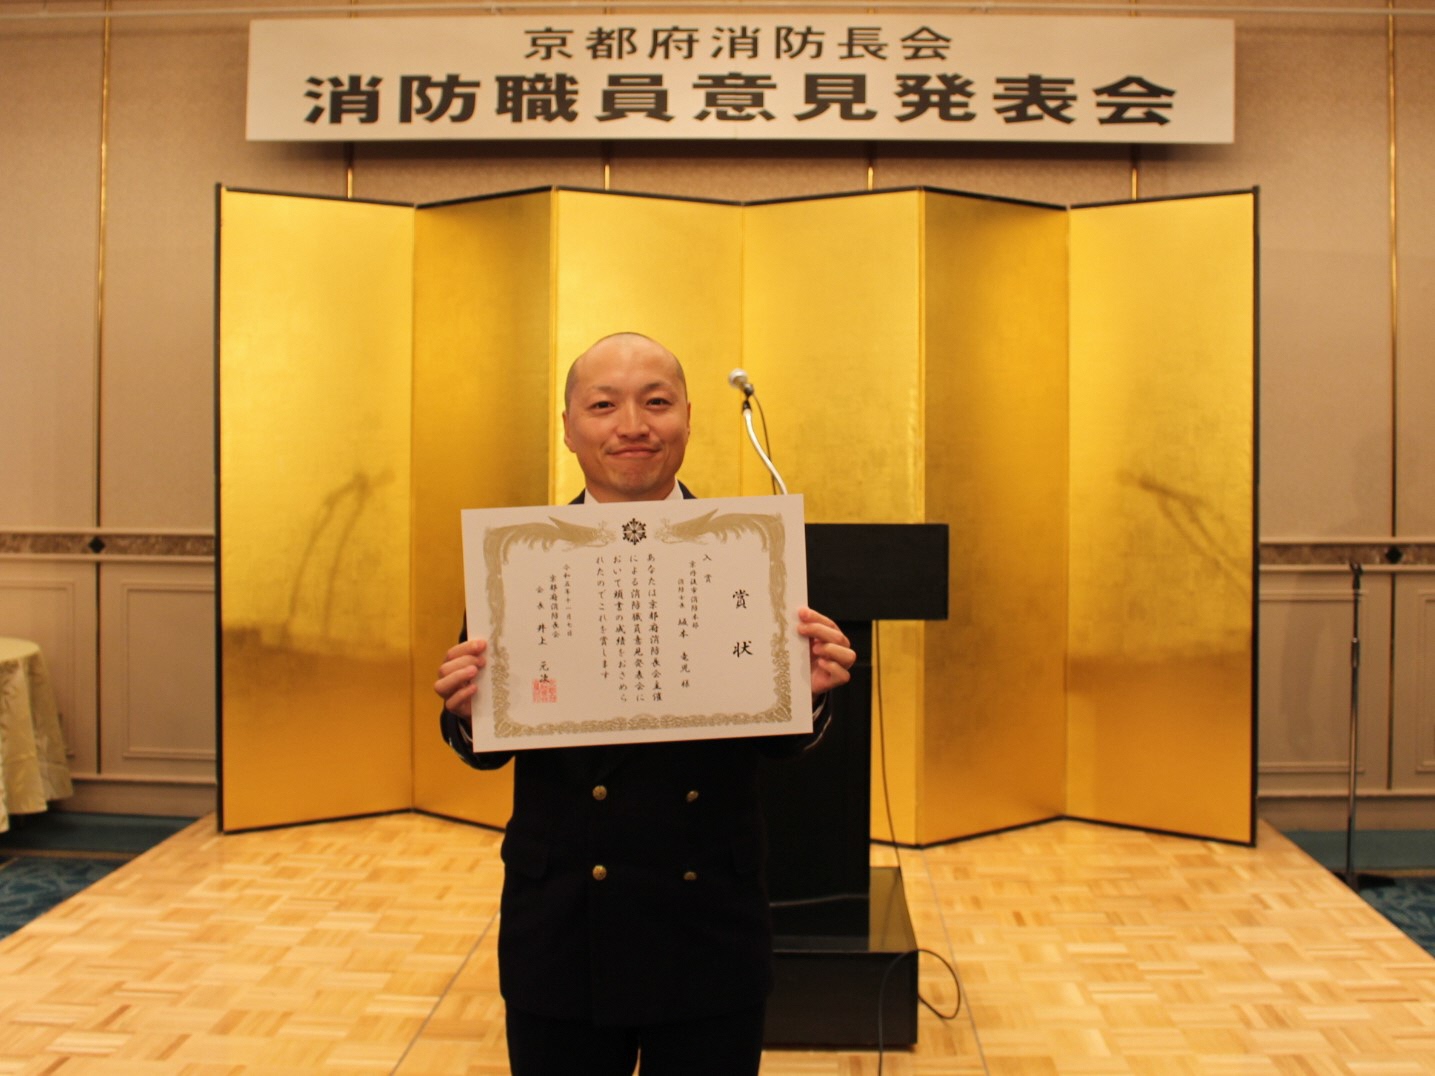 京都府消防長会
消防職員意見発表会
賞状
入賞
京丹後市消防本部
消防士長 坂本 竜児 様
あなたは京都府消防長会主催
による消防職員意見発表会に
おいて頭書の成績をおさめら
れたのでこれを賞します
令和五年十一月七日
京都府消防長会
会長 井上 元次